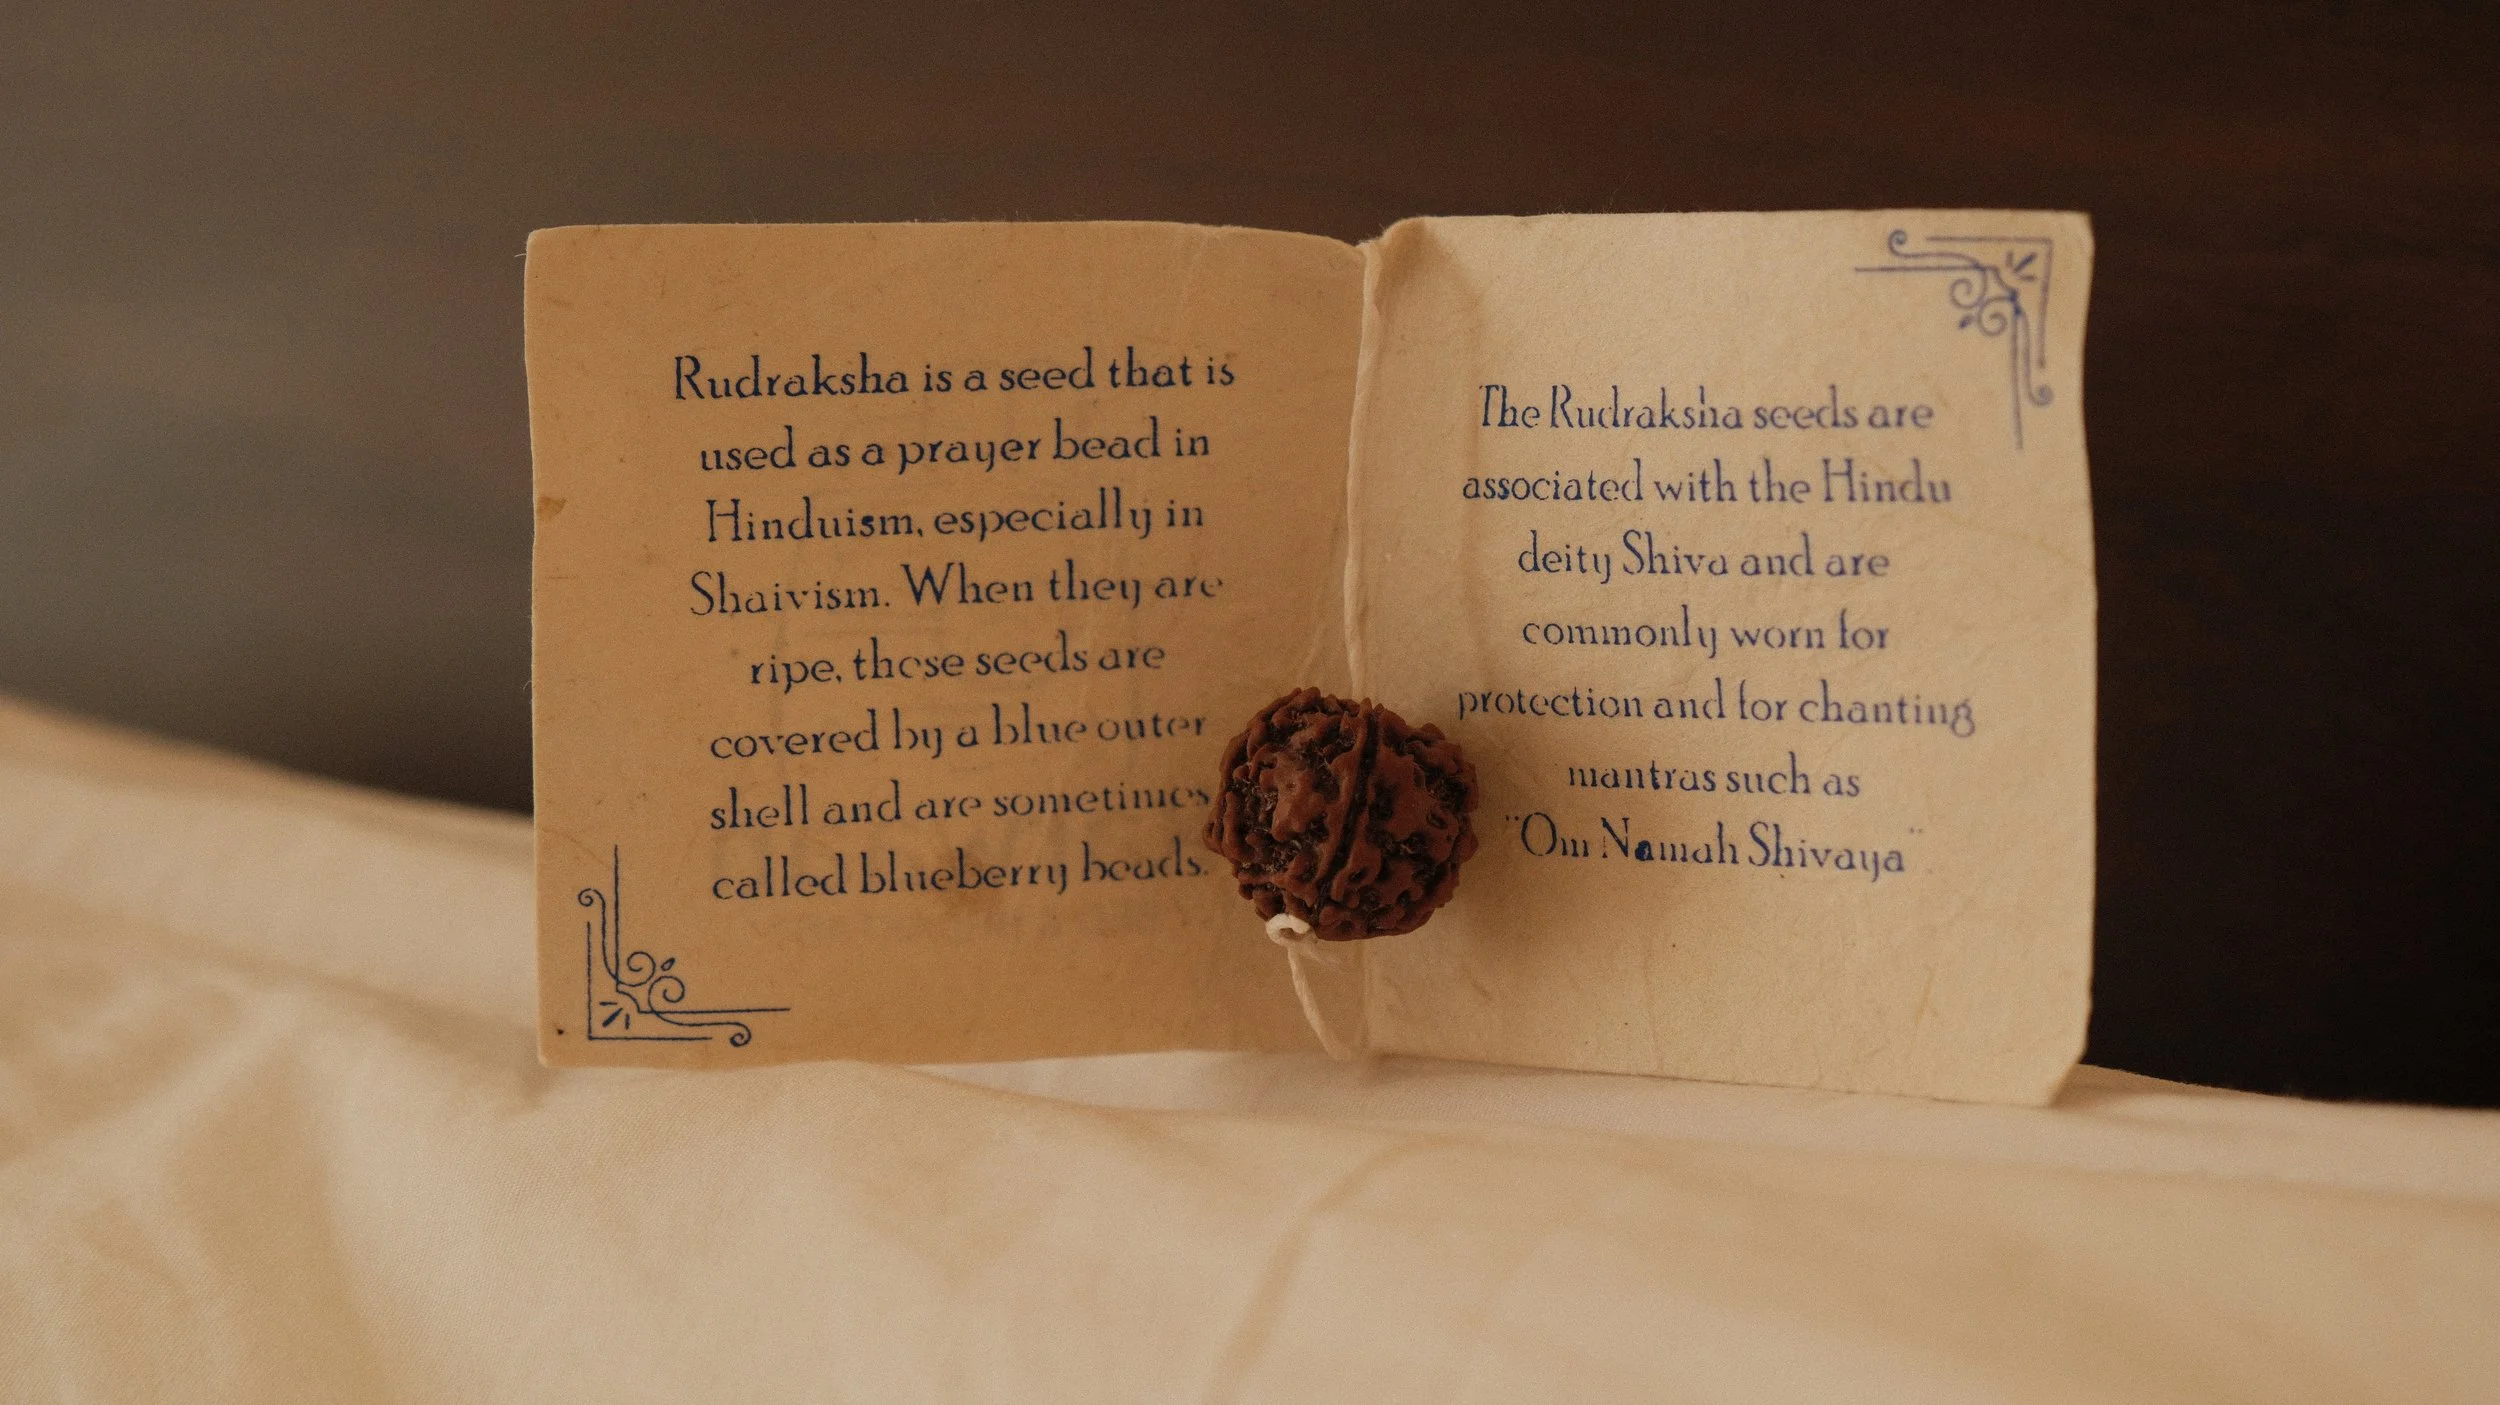 Rudraksha is a seed that is
used as a prayer bead in
Hinduism, especially in
Shaivism. When they are
ripe, these seeds are
covered by a blue outer
shell and are sometimes
called blueberry beads.
The Rudraksha seeds are
associated with the Hindu
deity Shiva and are
commonly worn for
protection and for chanting
mantras such as
"Om Namah Shivaya"